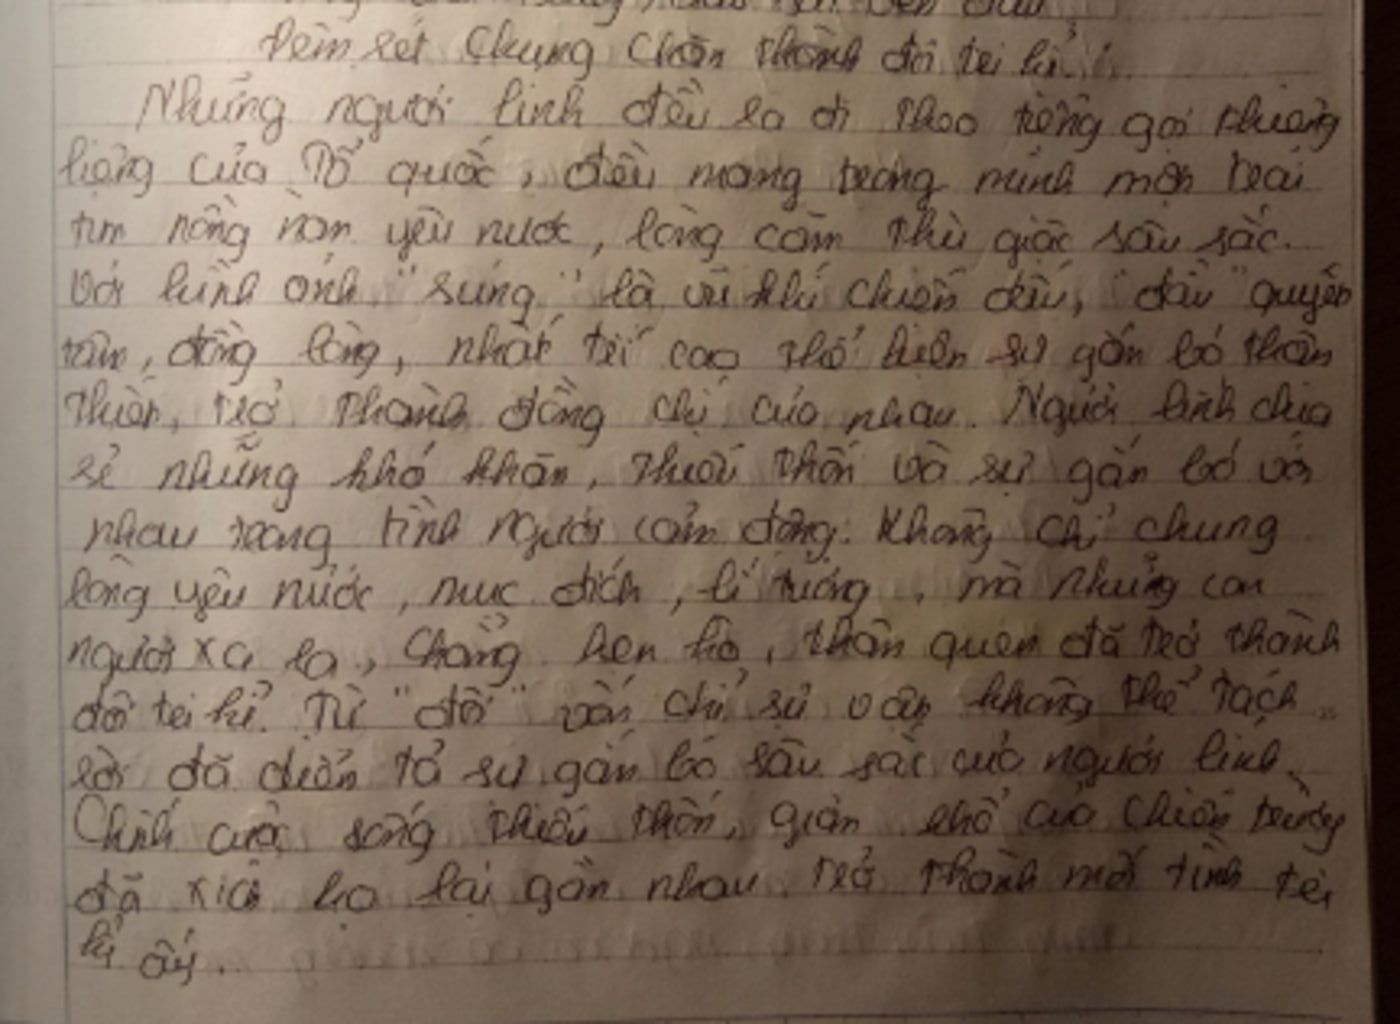 Đêm rét chung chăn thành đôi tri kỉ
Những người lính đều ra đi theo tiếng gọi thiêng
liêng của Tổ quốc, đều mang trong mình một trái
tim nồng nàn yêu nước, lòng căm thù giặc sâu sắc.
Với hình ảnh "súng" là vũ khí chiến đấu, "đầu" quyết
tâm, đồng lòng, nhất trí cao thể hiện sự gắn bó thân
thiết, trở thành đồng chí của nhau. Người lính chia
sẻ những khó khăn, thiếu thốn và sự gắn bó với
nhau trong tình người cảm động. Không chỉ chung
lòng yêu nước, mục đích, lí tưởng, mà những con
người xa lạ, chẳng hẹn hò, thân quen đã trở thành
đôi tri kỉ. Từ "đôi" vốn chỉ sự vật không thể tách
rời đã diễn tả sự gắn bó sâu sắc của người lính.
Chính cuộc sống thiếu thốn, gian khổ của chiến trường
đã xích họ lại gần nhau trở thành mối tình tri
kỉ ấy.